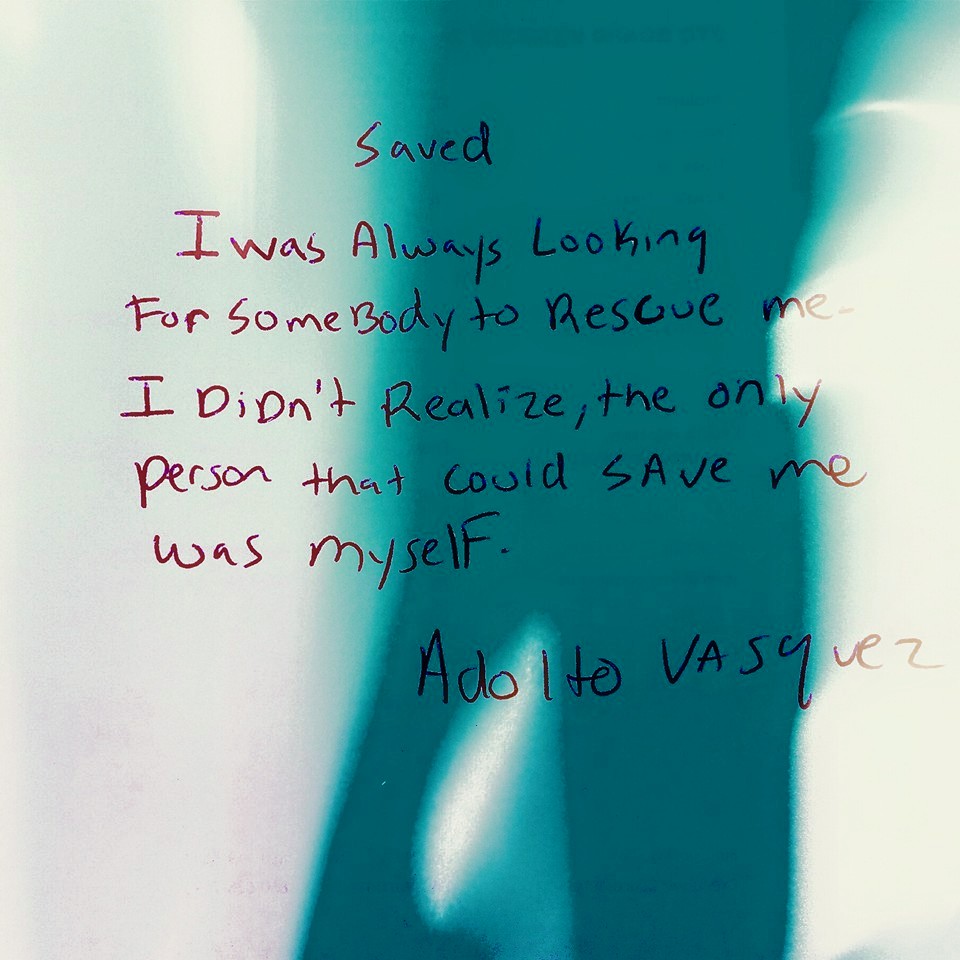 Saved
I was Always Looking
For SomeBody to Rescue me.
I DiDn't Realize, the only
person that could SAve me
was myself.
Adolto VASquez